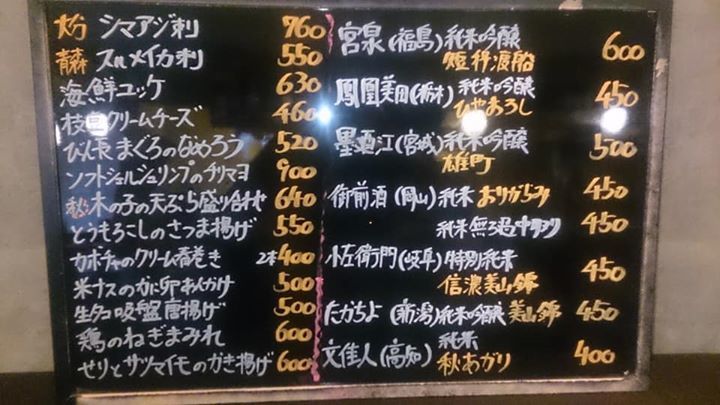 大分 シマアジ刺 760
青森 スルメイカ刺 550
海鮮ユッケ 630
枝豆クリームチーズ 460
びん長まぐろのなめろう 520
ソフトシェルシュリンプのチリマヨ 900
木の子の天ぷら盛り合わせ 640
とうもろこしのさつま揚げ 550
カボチャのクリーム春巻き 2本 400
米ナスのかに卵あんかけ 500
生タコ吸盤唐揚げ 500
鶏のねぎまみれ 600
せりとサツマイモのかき揚げ 600
宮泉(福島)純米吟醸 600
短稈渡船
鳳凰美田(栃木)純米吟醸 450
ひやおろし
墨廼江(宮城)純米吟醸 500
雄町
御前酒(岡山)純米 おりがらみ 450
純米無ろ過中取り 450
小左衛門(岐阜)特別純米 450
信濃美山錦
たかちよ(新潟)純米吟醸 美山錦 450
文佳人(高知)純米 400
秋あがり